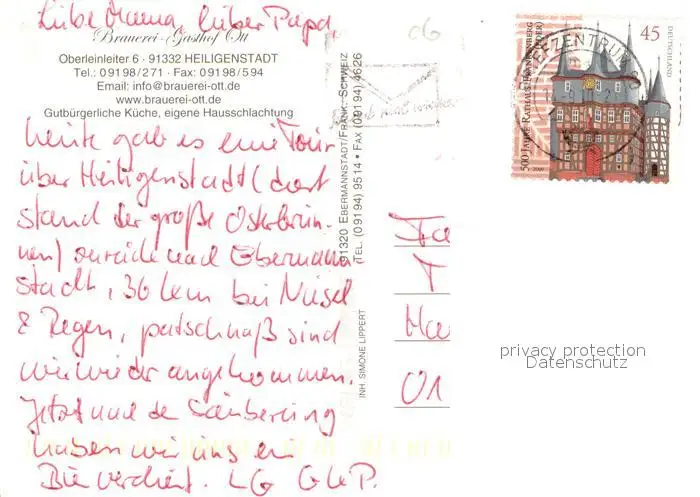 Liebe Mama, lieber Papa,
Brauerei - Gasthof Ott
Oberleinleiter 6 · 91332 HEILIGENSTADT
Tel.: 09198/271 · Fax: 09198/594
Email: info@brauerei-ott.de
www.brauerei-ott.de
Gutbürgerliche Küche, eigene Hausschlachtung
heute gab es eine Tour
über Heiligenstadt (dort
stand der große Osterbrun-
nen) zurück nach Ebermann-
stadt, 36 km bei Niesel
& Regen, patschnaß sind
wir wieder angekommen.
Jetzt nach der Säuberung
haben wir uns ein
Bier verdient. LG G & P.
91320 EBERMANNSTADT/FRÄNK. SCHWEIZ
TEL. (09194) 9514 • FAX (09194) 4626
INH. SIMONE LIPPERT
06
BRIEFZENTRUM
500 JAHRE RATHAUS FRANKENBERG (EDER)
DEUTSCHLAND
45
Fa
Ha
01
privacy protection
Datenschutz